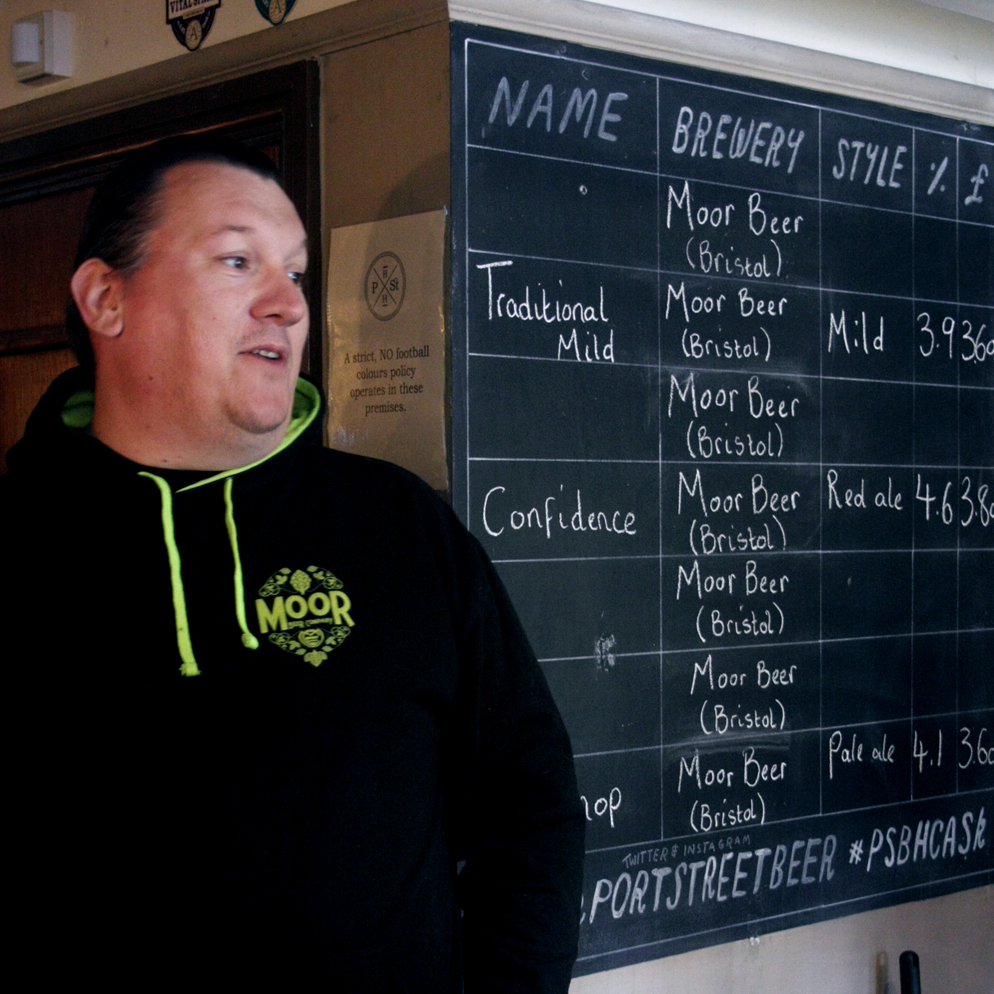 VITAL
P H St
B
H
A strict, NO football
colours policy
operates in these
premises.
MOOR
BEER COMPANY
NAME BREWERY STYLE % £
Moor Beer
(Bristol)
Traditional
Mild
Moor Beer
(Bristol)
Mild 3.9 3.60
Moor Beer
(Bristol)
Confidence
Moor Beer
(Bristol)
Red ale 4.6 3.80
Moor Beer
(Bristol)
Moor Beer
(Bristol)
Moor Beer
(Bristol)
Pale ale 4.1 3.60
TWITTER & INSTAGRAM
PORTSTREETBEER #PSBHCASK